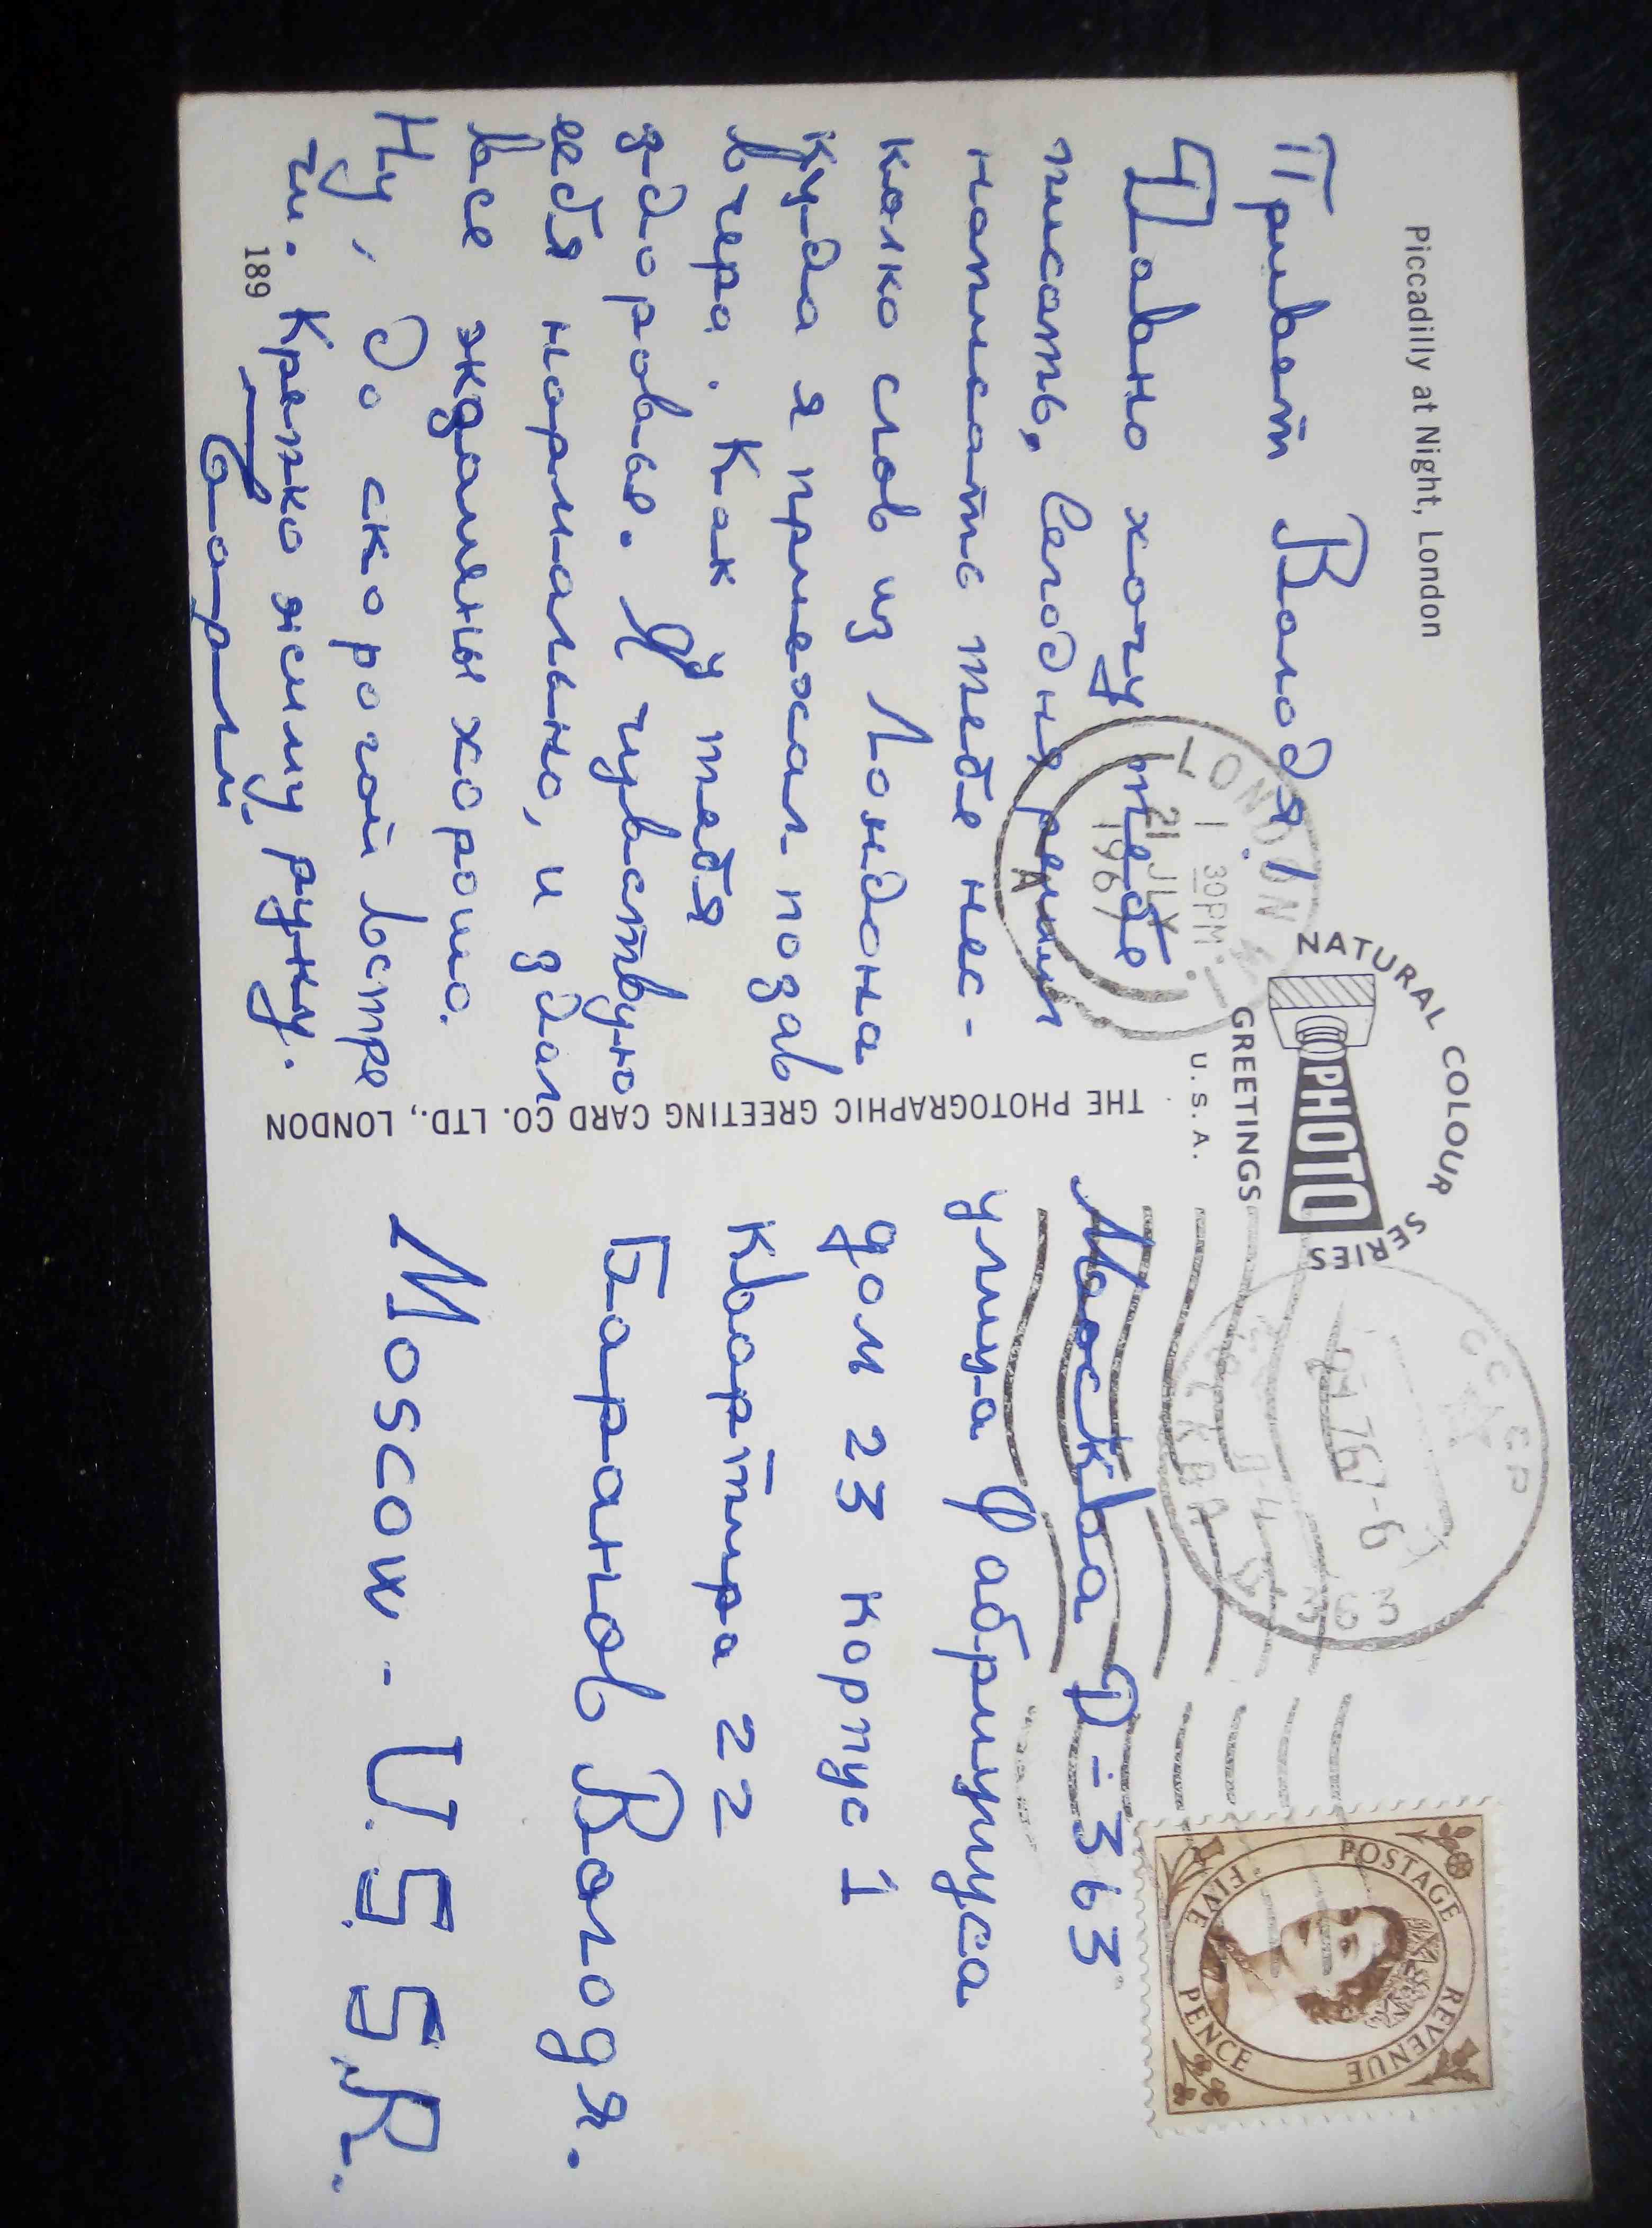 Piccadilly at Night, London
Привет Володя!
Давно хочу тебе
писать, Сегодня решил
написать тебе нес-
колко слов из Лондона
куда я приехал позав
вчера. Как у тебя
здоровье. Я чувствую
себя нормально, и здал
все экзамены хорошо.
Ну, до скорогой встре
чи. Крепко жсиму руку.
189
LONDON
1 30PM
21 JLY
1967
A
NATURAL COLOUR SERIES
PHOTO
GREETINGS
U.S.A.
THE PHOTOGRAPHIC GREETING CARD CO. LTD., LONDON
СССР
МОСКВА
363
POSTAGE REVENUE
FIVE PENCE
Москва Д-363
улица Фабрициуса
дом 23 корпус 1
квартира 22
Баранов Володя.
Moscow - U.S.S.R.